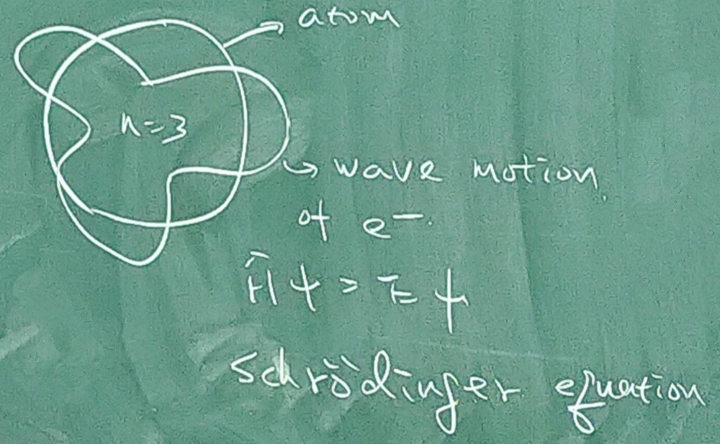 atom
n=3
wave motion
of e⁻.
Ĥψ = Eψ
Schrödinger equation